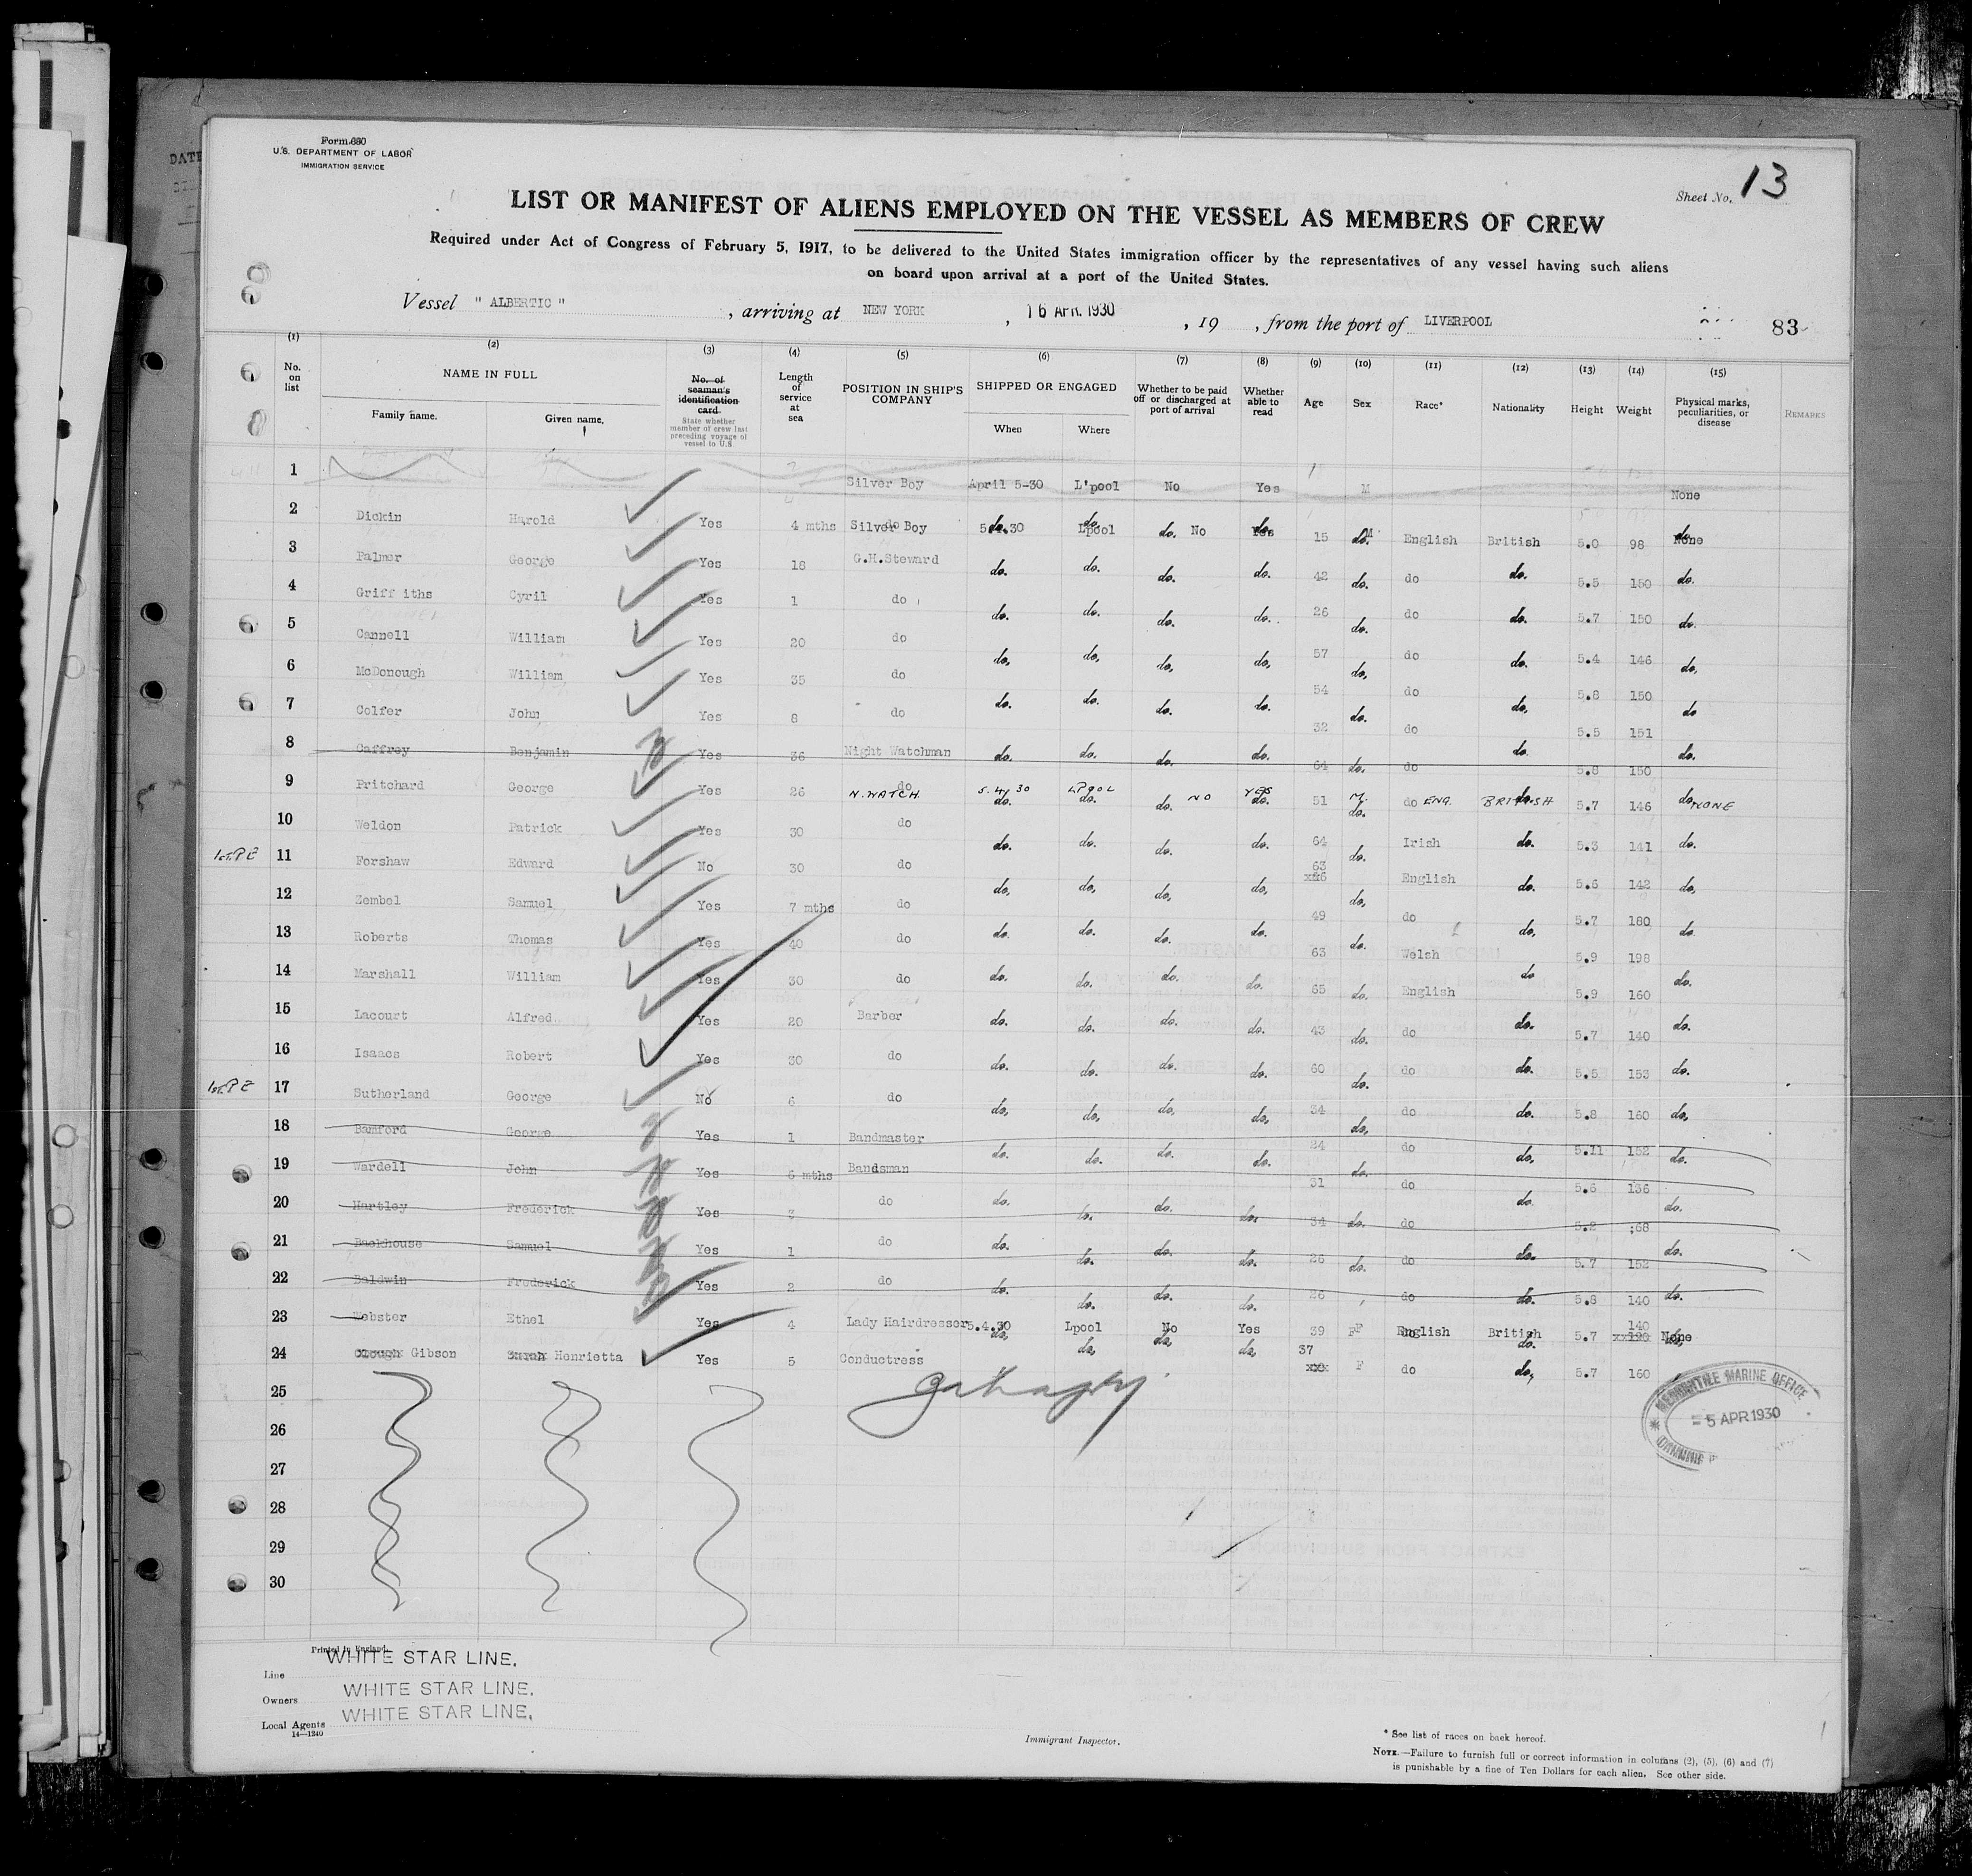 Form 680
U.S. DEPARTMENT OF LABOR
IMMIGRATION SERVICE
Sheet No. 13
LIST OR MANIFEST OF ALIENS EMPLOYED ON THE VESSEL AS MEMBERS OF CREW
Required under Act of Congress of February 5, 1917, to be delivered to the United States immigration officer by the representatives of any vessel having such aliens
on board upon arrival at a port of the United States.
Vessel " ALBERTIC " , arriving at NEW YORK , 16 APR. 1930 , 19 , from the port of LIVERPOOL 83
(1) (2) (3) (4) (5) (6) (7) (8) (9) (10) (11) (12) (13) (14) (15)
No. on list NAME IN FULL Family name. Given name. No. of seaman's identification card. State whether member of crew last preceding voyage of vessel to U.S Length of service at sea POSITION IN SHIP'S COMPANY SHIPPED OR ENGAGED When Where Whether to be paid off or discharged at port of arrival Whether able to read Age Sex Race* Nationality Height Weight Physical marks, peculiarities, or disease REMARKS
1 Silver Boy April 5-30 L'pool No Yes M None
2 Dickin Harold Yes 4 mths Silver Boy do 5.4.30 do. Lpool do. do. No Yes do. 15 M do. English British 5.0 98 None do.
3 Palmer George Yes 18 G.H.Steward do. do. do. do. 42 do. do do. 5.5 150 do.
4 Griffiths Cyril Yes 1 do do. do. do. do. 26 do. do do. 5.7 150 do.
5 Cannell William Yes 20 do do, do, do, do, 57 do, do do. 5.4 146 do,
6 McDonough William Yes 35 do do. do. do. do. 54 do. do do, 5.8 150 do
7 Colfer John Yes 8 do do. do. do. do. 32 do. do do. 5.5 151 do.
8 Caffrey Benjamin Yes 36 Night Watchman 64 do 5.8 150
9 Pritchard George Yes 26 do N.WATCH. 5.4.30 do. LPOOL do. do. NO YES do. 51 M. do. do ENG. BRITISH do. 5.7 146 do. NONE
10 Weldon Patrick Yes 30 do do. do. do. do. 64 do. Irish do. 5.3 141 do.
1st.P E 11 Forshaw Edward No 30 do do, do, do, do, 63 do, English do. 5.6 142 do,
12 Zembel Samuel Yes 7 mths do do. do. do. do. 49 do. do do, 5.7 180 do
13 Roberts Thomas Yes 40 do 63 Welsh do 5.9 198
14 Marshall William Yes 30 do do. do. do. do. 65 do. English 5.9 160 do.
15 Lacourt Alfred Yes 20 Barber do. do. do. do. 43 do. do do. 5.7 140 do.
16 Isaacs Robert Yes 30 do do. do. do. do. 60 do. do do. 5.5 153 do.
1st.P E 17 Sutherland George No 6 do do, do, do, do, 34 do, do do. 5.8 160 do,
18 Bamford George Yes 1 Bandmaster do. do. do. do. 24 do. do do, 5.11 152 do.
19 Wardell John Yes 6 mths Bandsman 31 do do 5.6 136
20 Hartley Frederick Yes 3 do do. do. do. do. 34 do. do 5.2 ;68 do.
21 Backhouse Samuel Yes 1 do do. do. do. do. 26 do. do do. 5.7 152 do.
22 Baldwin Frederick Yes 2 do do. do. do. do. 26 do do. 5.8 140 do.
23 Webster Ethel Yes 4 Lady Hairdresser 5.4.30 do, Lpool do, No do, Yes do, 39 F English do British do. 5.7 140 None do,
24 Gibson Henrietta Yes 5 Conductress 37 F do do, 5.7 160
25
26
27
28
29
30
MERCANTILE MARINE OFFICE
5 APR 1930
Printed in England.
Line WHITE STAR LINE.
Owners WHITE STAR LINE.
Local Agents WHITE STAR LINE.
14—1240
Immigrant Inspector.
* See list of races on back hereof.
NOTE.—Failure to furnish full or correct information in columns (2), (5), (6) and (7)
is punishable by a fine of Ten Dollars for each alien. See other side.